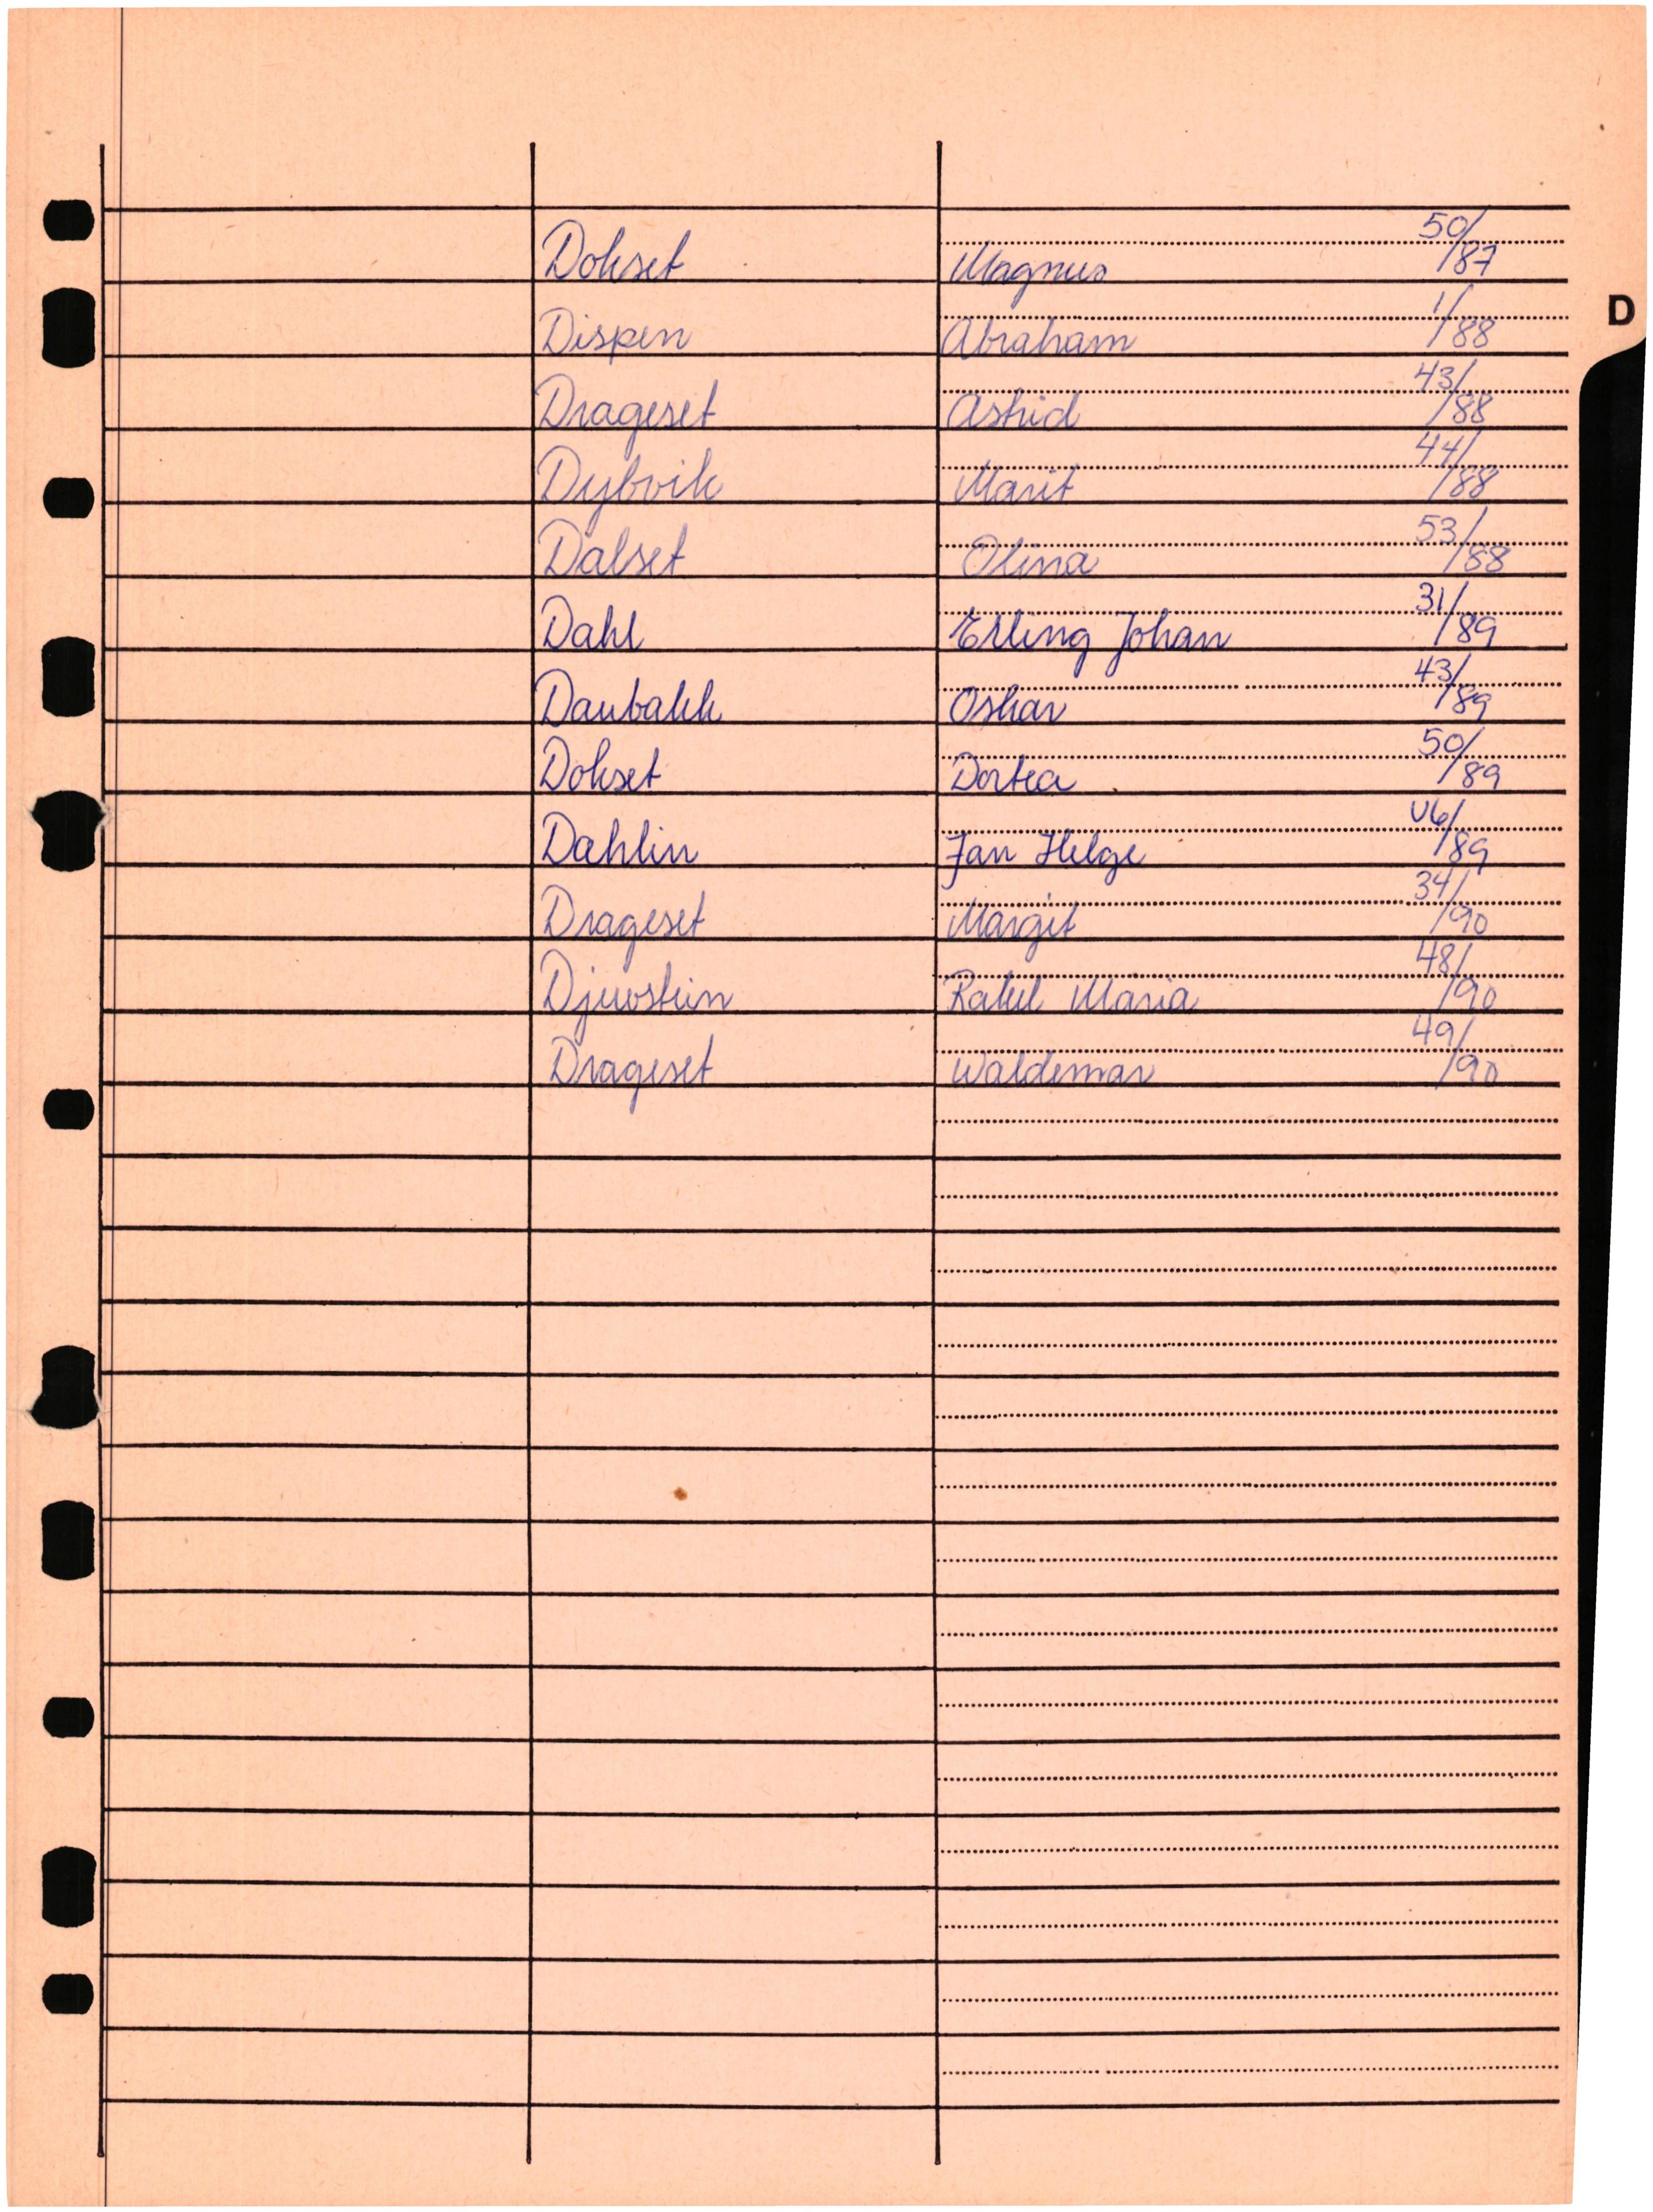 Dokset Magnus 50/87
D
Dispen Abraham 1/88
Drageset Astrid 43/88
Dybvik Marit 44/88
Dalset Olina 53/88
Dahl Erling Johan 31/89
Daubakk Oskar 43/89
Dokset Dortea 50/89
Dahlin Jan Helge U6/89
Drageset Margit 34/90
Djuvstein Rakel Maria 48/90
Drageset Waldemar 49/90